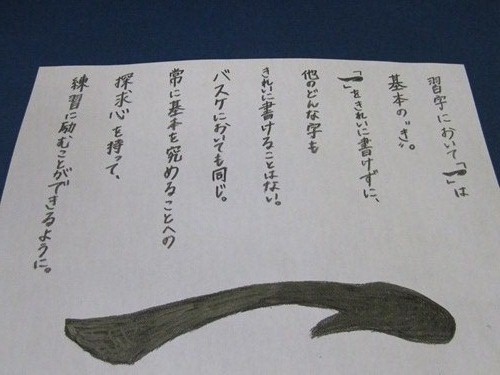 習字において「一」は
基本の〝き〟。
「一」をきれいに書けずに、
他のどんな字も
きれいに書けることはない。
バスケにおいても同じ。
常に基本を究めることへの
探求心を持って、
練習に励むことができるように。
一